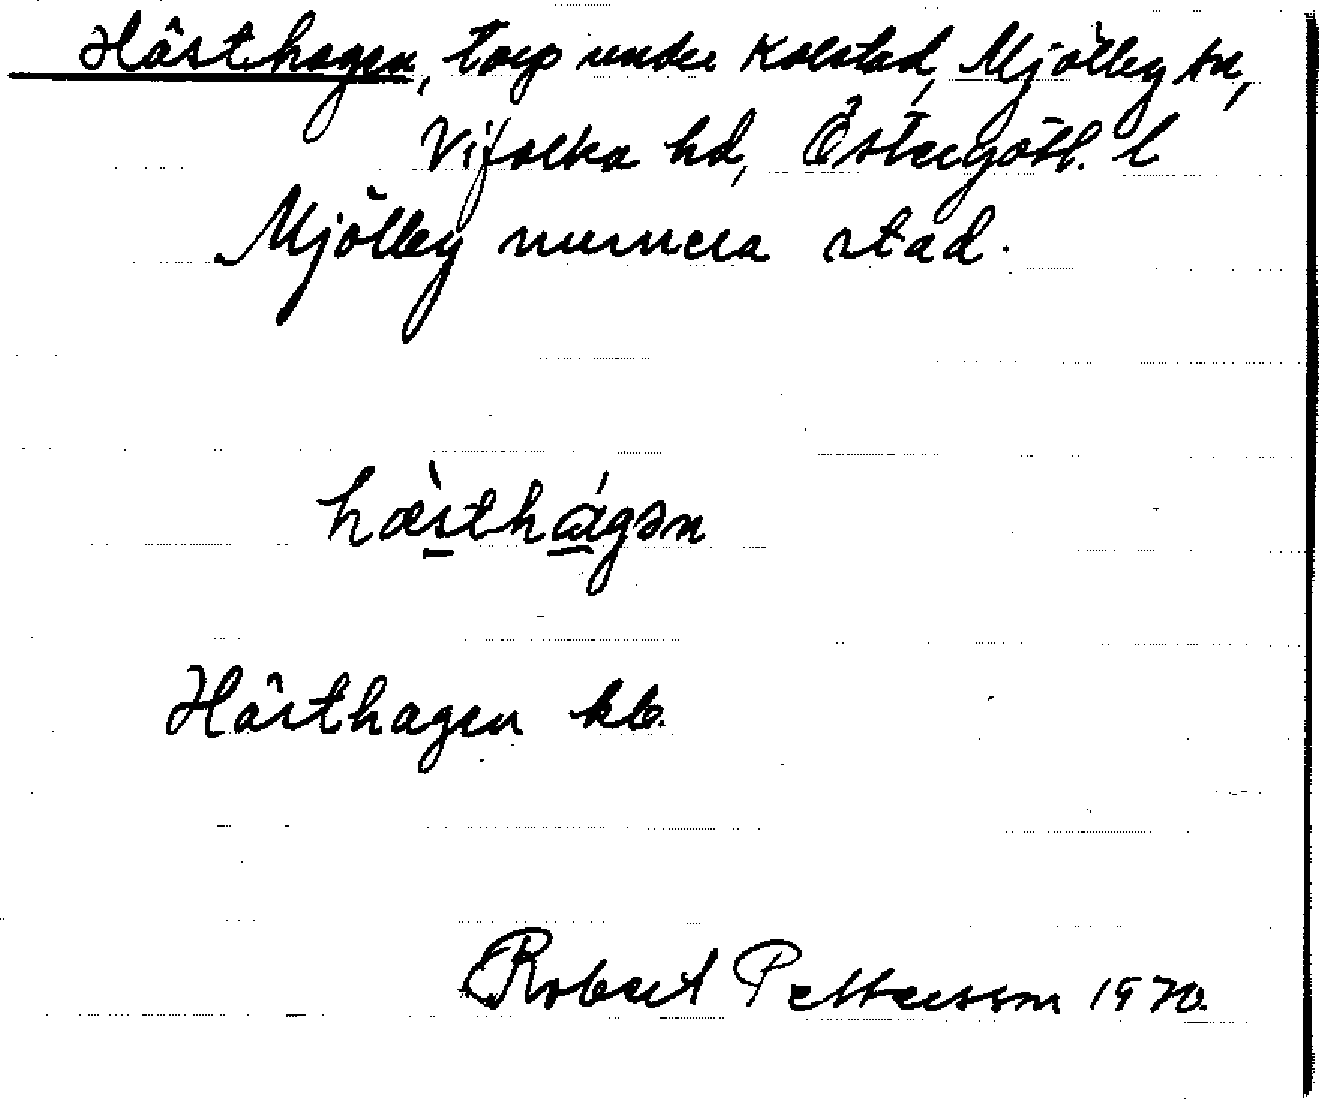 Hästhagen, torp under Kolstad, Mjölby sn,
Vifolka hd, Östergötl. l
Mjölby numera stad.
hæ̀sthágən
Hästhagen kb.
Robert Pettersson 1970.